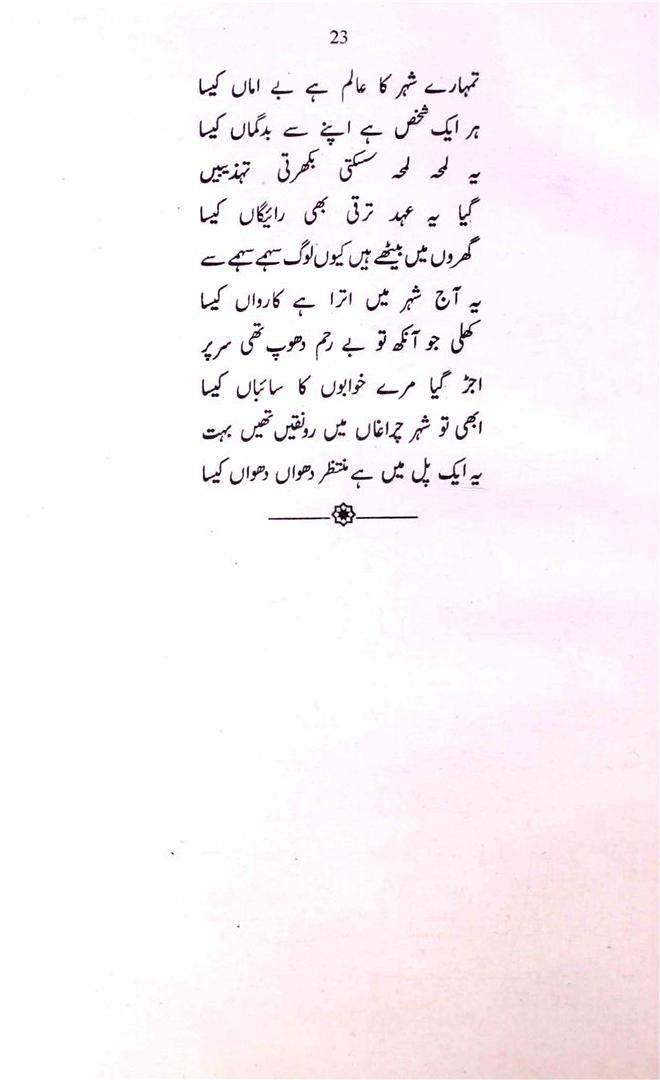 23
تمہارے شہر کا عالم ہے بے اماں کیسا
ہر ایک شخص ہے اپنے سے بدگماں کیسا
یہ لمحہ لمحہ سسکتی بکھرتی تہذیبیں
گیا یہ عہد ترقی بھی رائیگاں کیسا
گھروں میں بیٹھے ہیں کیوں لوگ سہمے سہمے سے
یہ آج شہر میں اترا ہے کارواں کیسا
کھلی جو آنکھ تو بے رحم دھوپ تھی سر پر
اجڑ گیا مرے خوابوں کا سائباں کیسا
ابھی تو شہر چراغاں میں رونقیں تھیں بہت
یہ ایک پل میں ہے منتظر دھواں دھواں کیسا